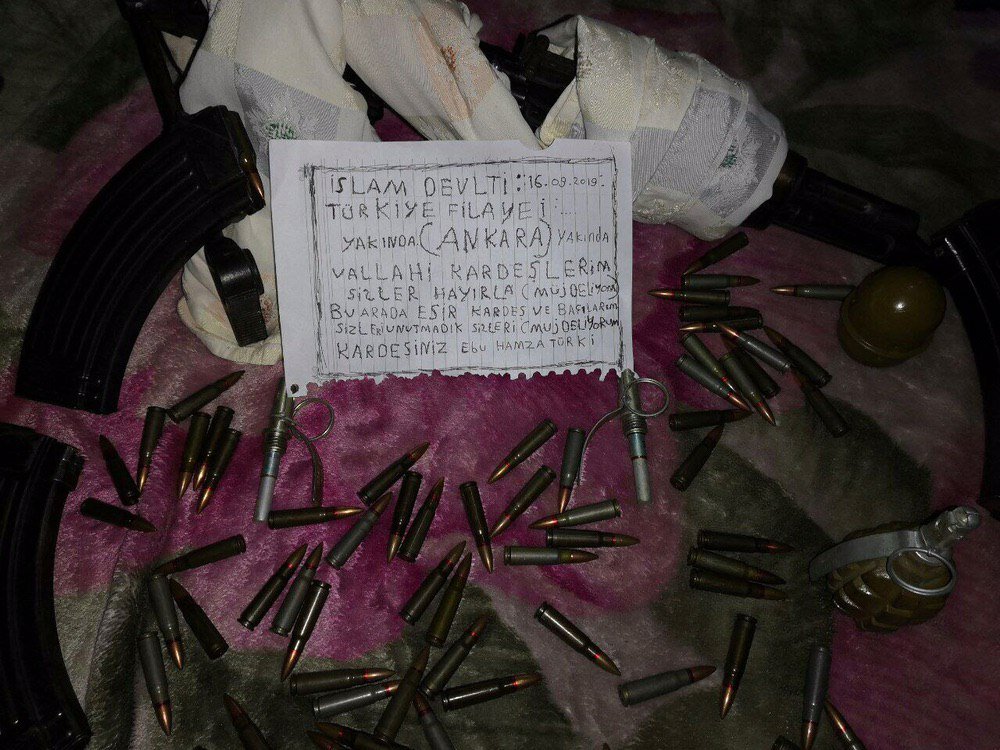 İSLAM DEVLTİ : 16.09.2019:
TÜRKİYE FİLAYEJ :....
YAKINDA (ANKARA) YAKINDA
VALLAHİ KARDEŞLERİM
SİZLER HAYIRLA (MÜJDELİYOM
BU ARADA ESİR KARDEŞ VE BAFILARIM
SİZLERİ UNUTMADIK SİZLERİ (MÜJDELİYORUM
KARDEŞİNİZ EBU HAMZA TÜRKİ